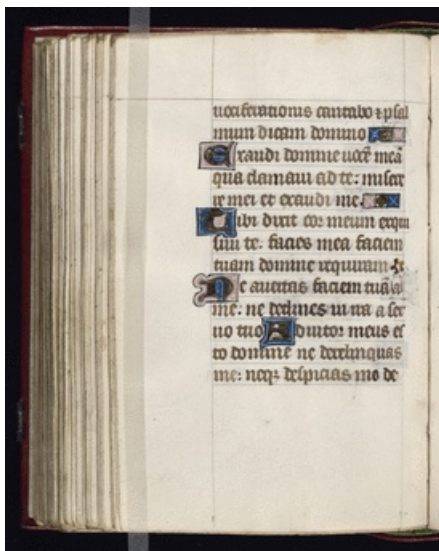 uociferationis cantabo ⁊ psal
mum dicam domino
Exaudi domine uocẽ meã
qua clamaui ad te: misere
re mei et exaudi me.
Tibi dixit cor meum exqui
siui te facies mea faciem
tuam domine requiram
Ne auertas faciem tuã a
me: ne declines in ira a ser
uo tuo Adiutor meus es
to domine ne derelinquas
me: neqꝫ despicias me de